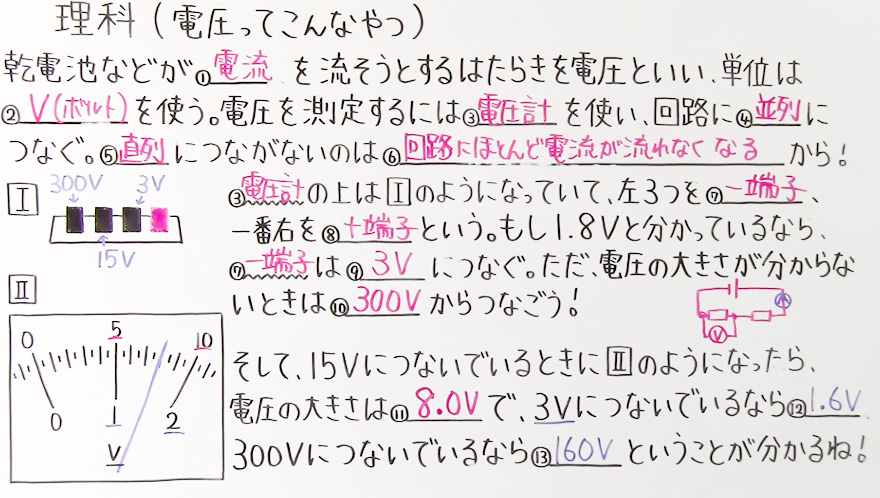 理科(電圧ってこんなやつ)
乾電池などが①電流を流そうとするはたらきを電圧といい、単位は
②V(ボルト)を使う。電圧を測定するには③電圧計を使い、回路に④並列に
つなぐ。⑤直列につながないのは⑥回路にほとんど電流が流れなくなるから!
I 300V 3V
15V
③電圧計の上はIのようになっていて、左3つを⑦-端子、
一番右を⑧+端子という。もし1.8Vと分かっているなら、
⑦-端子は⑨3Vにつなぐ。ただ、電圧の大きさが分からな
いときは⑩300Vからつなごう!
V A
II
0 5 10
0 1 2
V
そして、15VにつないでいるときにIIのようになったら、
電圧の大きさは⑪8.0Vで、3Vにつないでいるなら⑫1.6V、
300Vにつないでいるなら⑬160Vということが分かるね!